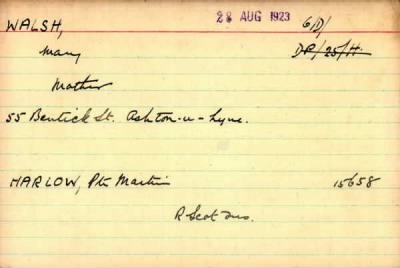 WALSH, 28 AUG 1923 6/D/
Mary DP/25/H.
Mother
55 Bentick St. Ashton-u-Lyne.
HARLOW, Pte Martin 15658
R Scot Fus.